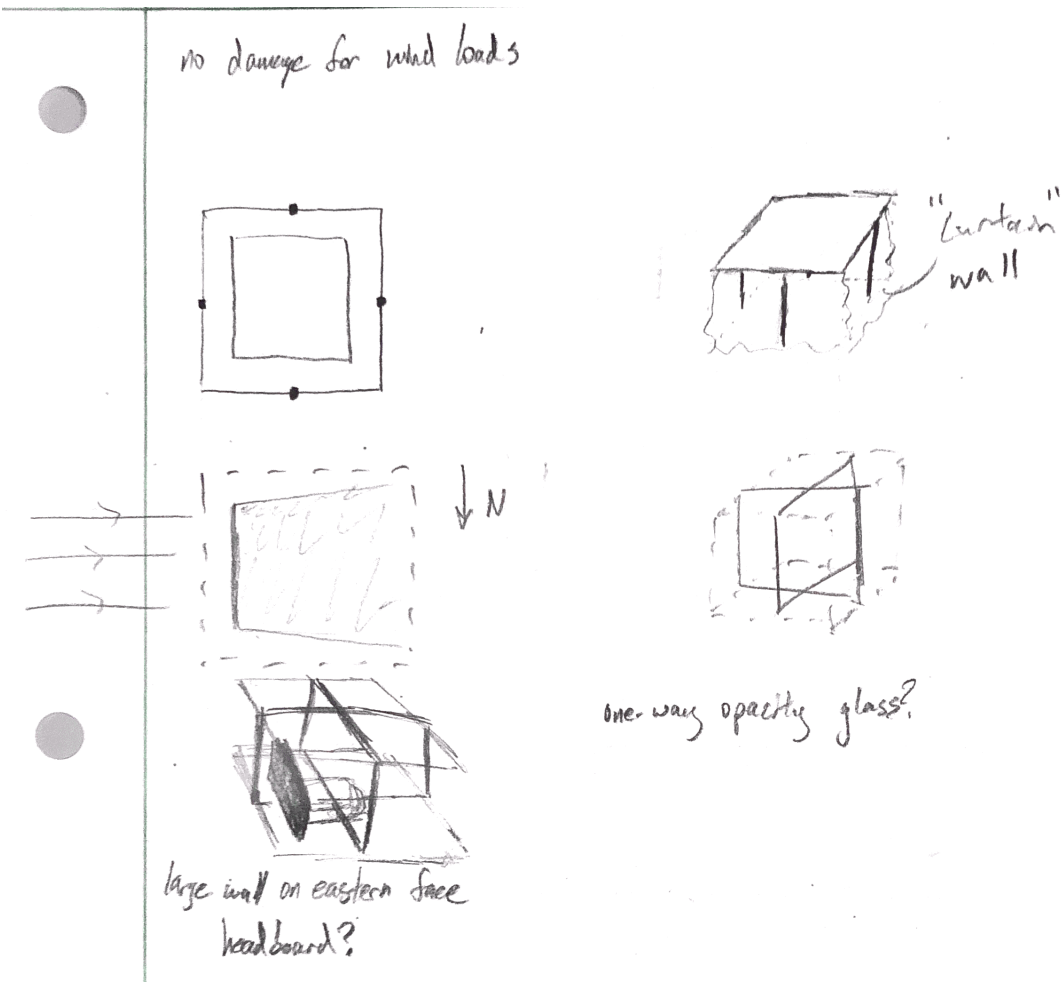 no damage for wind loads
"Curtain"
wall
N
one-way opacity glass?
large wall on eastern face
headboard?